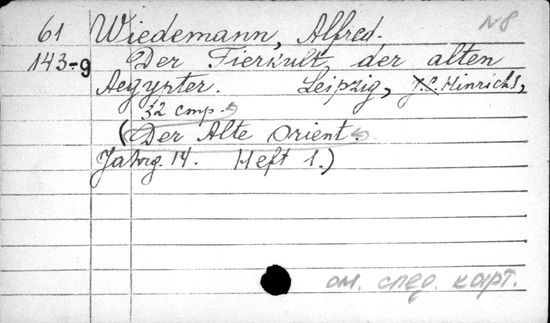 61 Wiedemann, Alfred. N8
143-9 Der Tierkult der alten
Aegypter. Leipzig, J.C. Hinrichs,
32 стр.
(Der Alte Orient.
Jahrg. 14. Heft 1.)
ом. спец. карт.